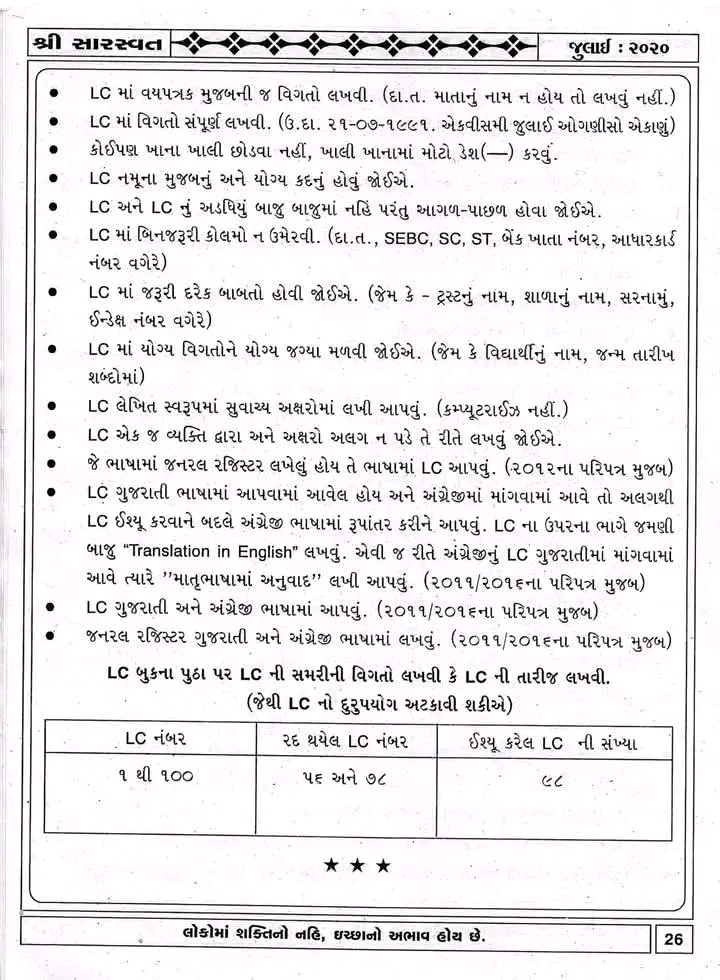 શ્રી સારસ્વત
જુલાઈ : ૨૦૨૦
• LC માં વયપત્રક મુજબની જ વિગતો લખવી. (દા.ત. માતાનું નામ ન હોય તો લખવું નહીં.)
• LC માં વિગતો સંપૂર્ણ લખવી. (ઉ.દા. ૨૧-૦૭-૧૯૯૧. એકવીસમી જુલાઈ ઓગણીસો એકાણું)
• કોઈપણ ખાના ખાલી છોડવા નહીં, ખાલી ખાનામાં મોટો ડેશ(—) કરવું.
• LC નમૂના મુજબનું અને યોગ્ય કદનું હોવું જોઈએ.
• LC અને LC નું અડધિયું બાજુ બાજુમાં નહિ પરંતુ આગળ-પાછળ હોવા જોઈએ.
• LC માં બિનજરૂરી કોલમો ન ઉમેરવી. (દા.ત., SEBC, SC, ST, બેંક ખાતા નંબર, આધારકાર્ડ
નંબર વગેરે)
• LC માં જરૂરી દરેક બાબતો હોવી જોઈએ. (જેમ કે - ટ્રસ્ટનું નામ, શાળાનું નામ, સરનામું,
ઈન્ડેક્ષ નંબર વગેરે)
• LC માં યોગ્ય વિગતોને યોગ્ય જગ્યા મળવી જોઈએ. (જેમ કે વિદ્યાર્થીનું નામ, જન્મ તારીખ
શબ્દોમાં)
• LC લેખિત સ્વરૂપમાં સુવાચ્ય અક્ષરોમાં લખી આપવું. (કમ્પ્યૂટરાઈઝ નહીં.)
• LC એક જ વ્યક્તિ દ્વારા અને અક્ષરો અલગ ન પડે તે રીતે લખવું જોઈએ.
• જે ભાષામાં જનરલ રજિસ્ટર લખેલું હોય તે ભાષામાં LC આપવું. (૨૦૧૨ના પરિપત્ર મુજબ)
• LC ગુજરાતી ભાષામાં આપવામાં આવેલ હોય અને અંગ્રેજીમાં માંગવામાં આવે તો અલગથી
LC ઈશ્યૂ કરવાને બદલે અંગ્રેજી ભાષામાં રૂપાંતર કરીને આપવું. LC ના ઉપરના ભાગે જમણી
બાજુ “Translation in English” લખવું. એવી જ રીતે અંગ્રેજીનું LC ગુજરાતીમાં માંગવામાં
આવે ત્યારે ”માતૃભાષામાં અનુવાદ” લખી આપવું. (૨૦૧૧/૨૦૧૬ના પરિપત્ર મુજબ)
• LC ગુજરાતી અને અંગ્રેજી ભાષામાં આપવું. (૨૦૧૧/૨૦૧૬ના પરિપત્ર મુજબ)
• જનરલ રજિસ્ટર ગુજરાતી અને અંગ્રેજી ભાષામાં લખવું. (૨૦૧૧/૨૦૧૬ના પરિપત્ર મુજબ)
LC બુકના પુઠા પર LC ની સમરીની વિગતો લખવી કે LC ની તારીજ લખવી.
(જેથી LC નો દુરુપયોગ અટકાવી શકીએ)
LC નંબર રદ થયેલ LC નંબર ઈશ્યૂ કરેલ LC ની સંખ્યા
૧ થી ૧૦૦ ૫૬ અને ૭૮ ૯૮
★ ★ ★
લોકોમાં શક્તિનો નહિ, ઇચ્છાનો અભાવ હોય છે.
26